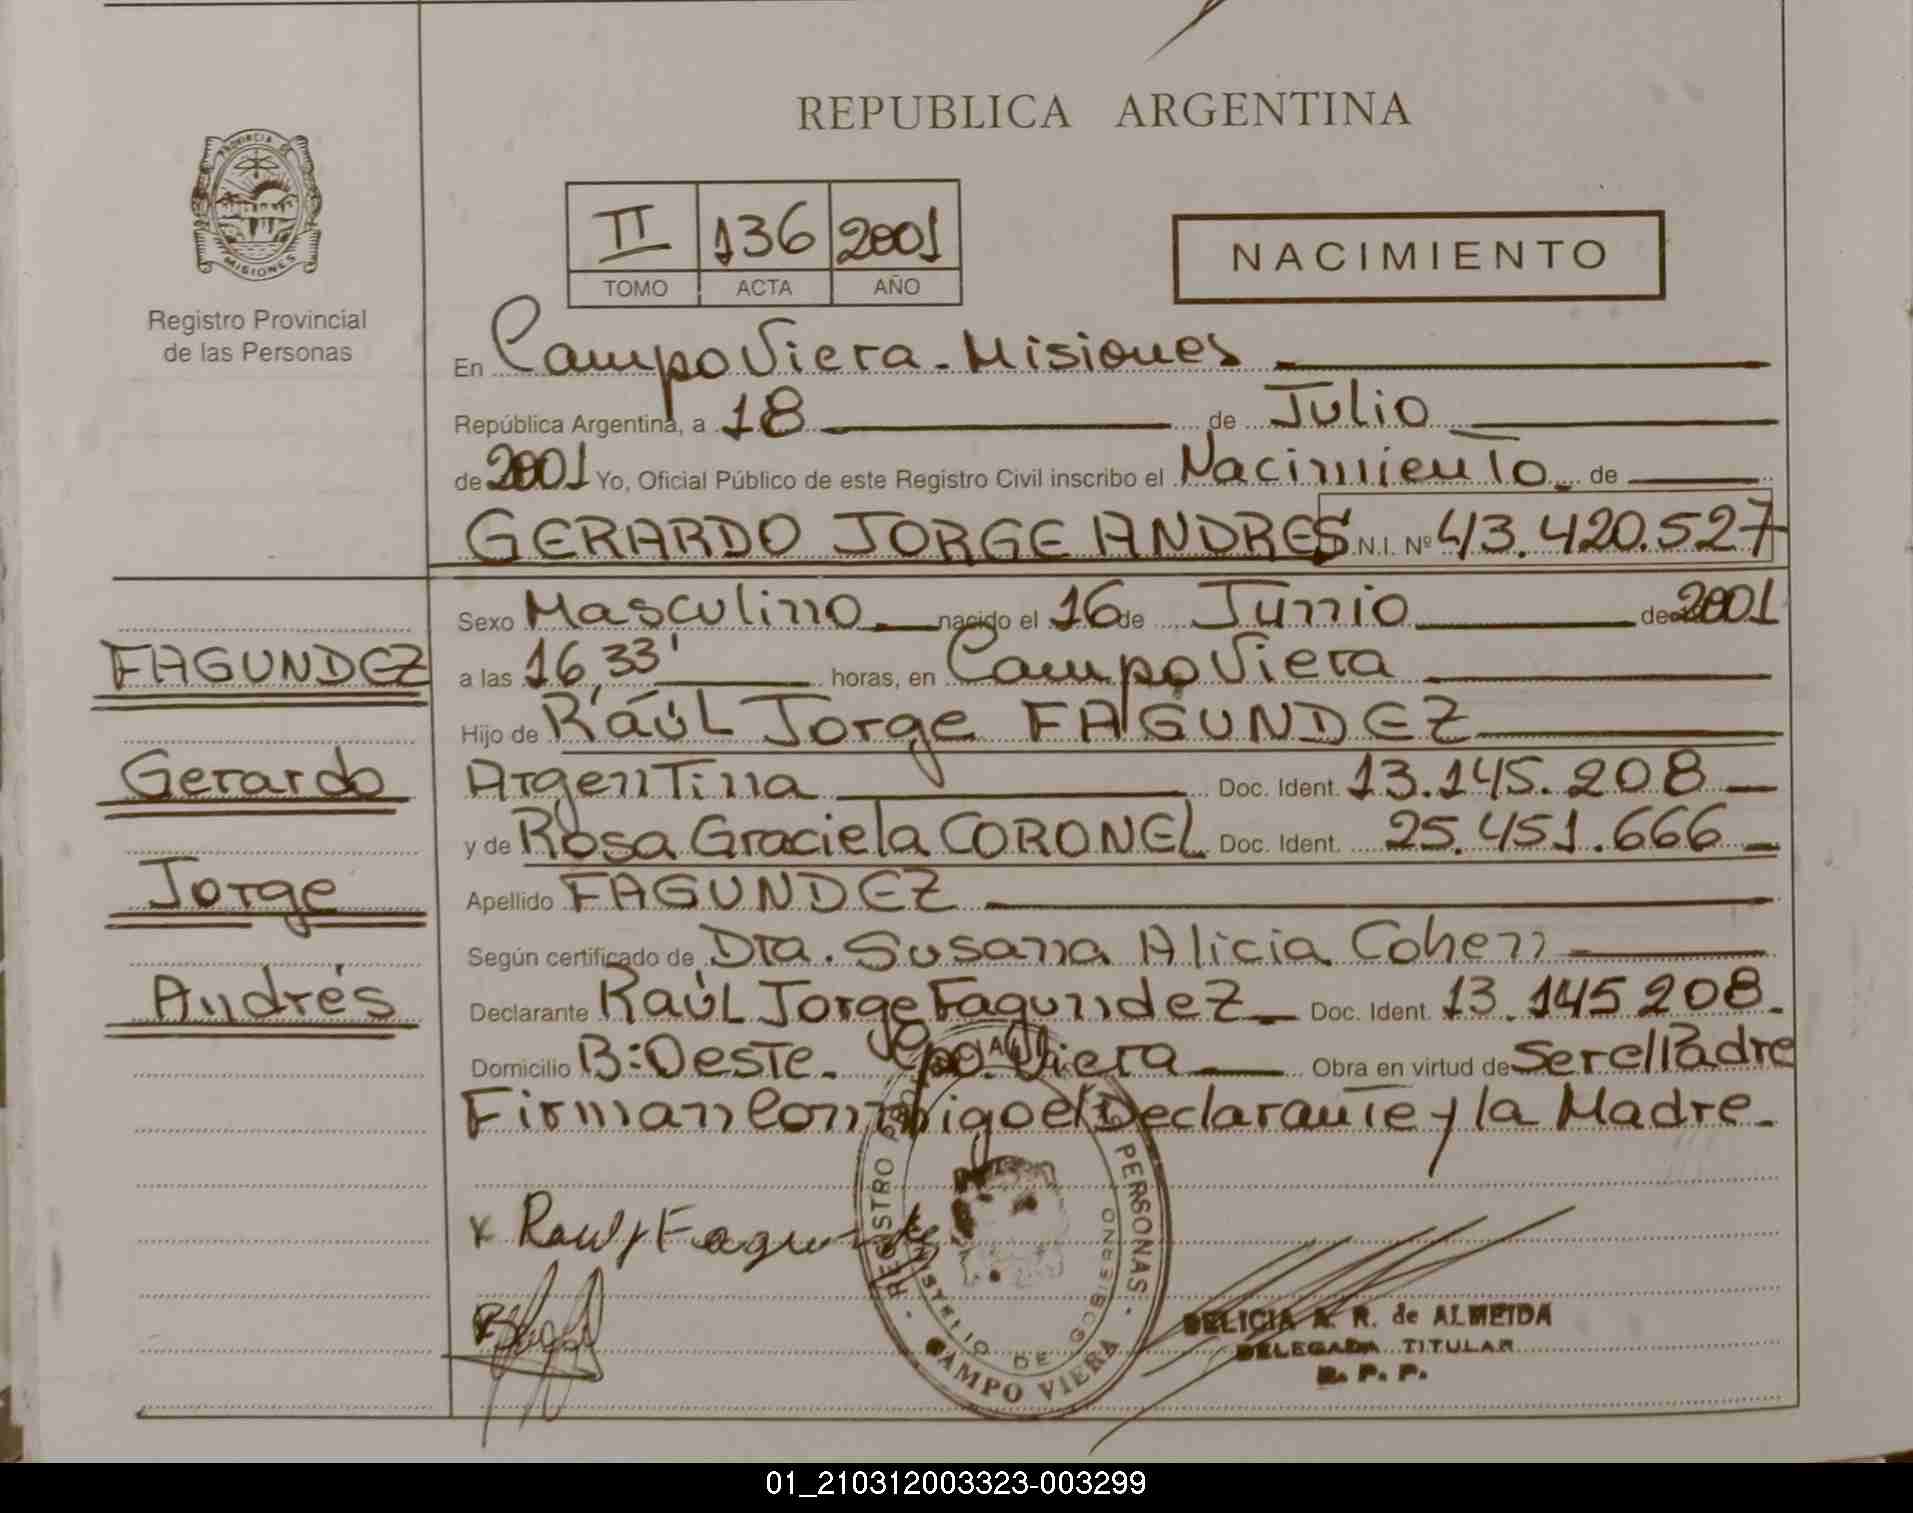 REPUBLICA ARGENTINA
PROVINCIA DE MISIONES
Registro Provincial
de las Personas
II 136 2001
TOMO ACTA AÑO
NACIMIENTO
En Campo Viera - Misiones
República Argentina, a 18 de Julio
de 2001 Yo, Oficial Público de este Registro Civil inscribo el Nacimiento de
GERARDO JORGE ANDRES N.I. Nº 43.420.527
Sexo Masculino nacido el 16 de Junio de 2001
a las 16,33' horas, en Campo Viera
Hijo de Raúl Jorge FAGUNDEZ
Argentina Doc. Ident. 13.145.208
y de Rosa Graciela CORONEL Doc. Ident. 25.451.666
Apellido FAGUNDEZ
Según certificado de Dra. Susana Alicia Cohen
Declarante Raúl Jorge Fagundez Doc. Ident. 13.145208.
Domicilio B: Oeste. Cpo. Viera Obra en virtud de Ser el Padre
Firman Conmigo el Declarante y la Madre.
FAGUNDEZ
Gerardo
Jorge
Andrés
x Raul J Fagundez
REGISTRO PERSONAS
MINISTERIO DE GOBIERNO
CAMPO VIERA
DELICIA A. R. de ALMEIDA
DELEGADA TITULAR
R. P. P.
01_210312003323-003299